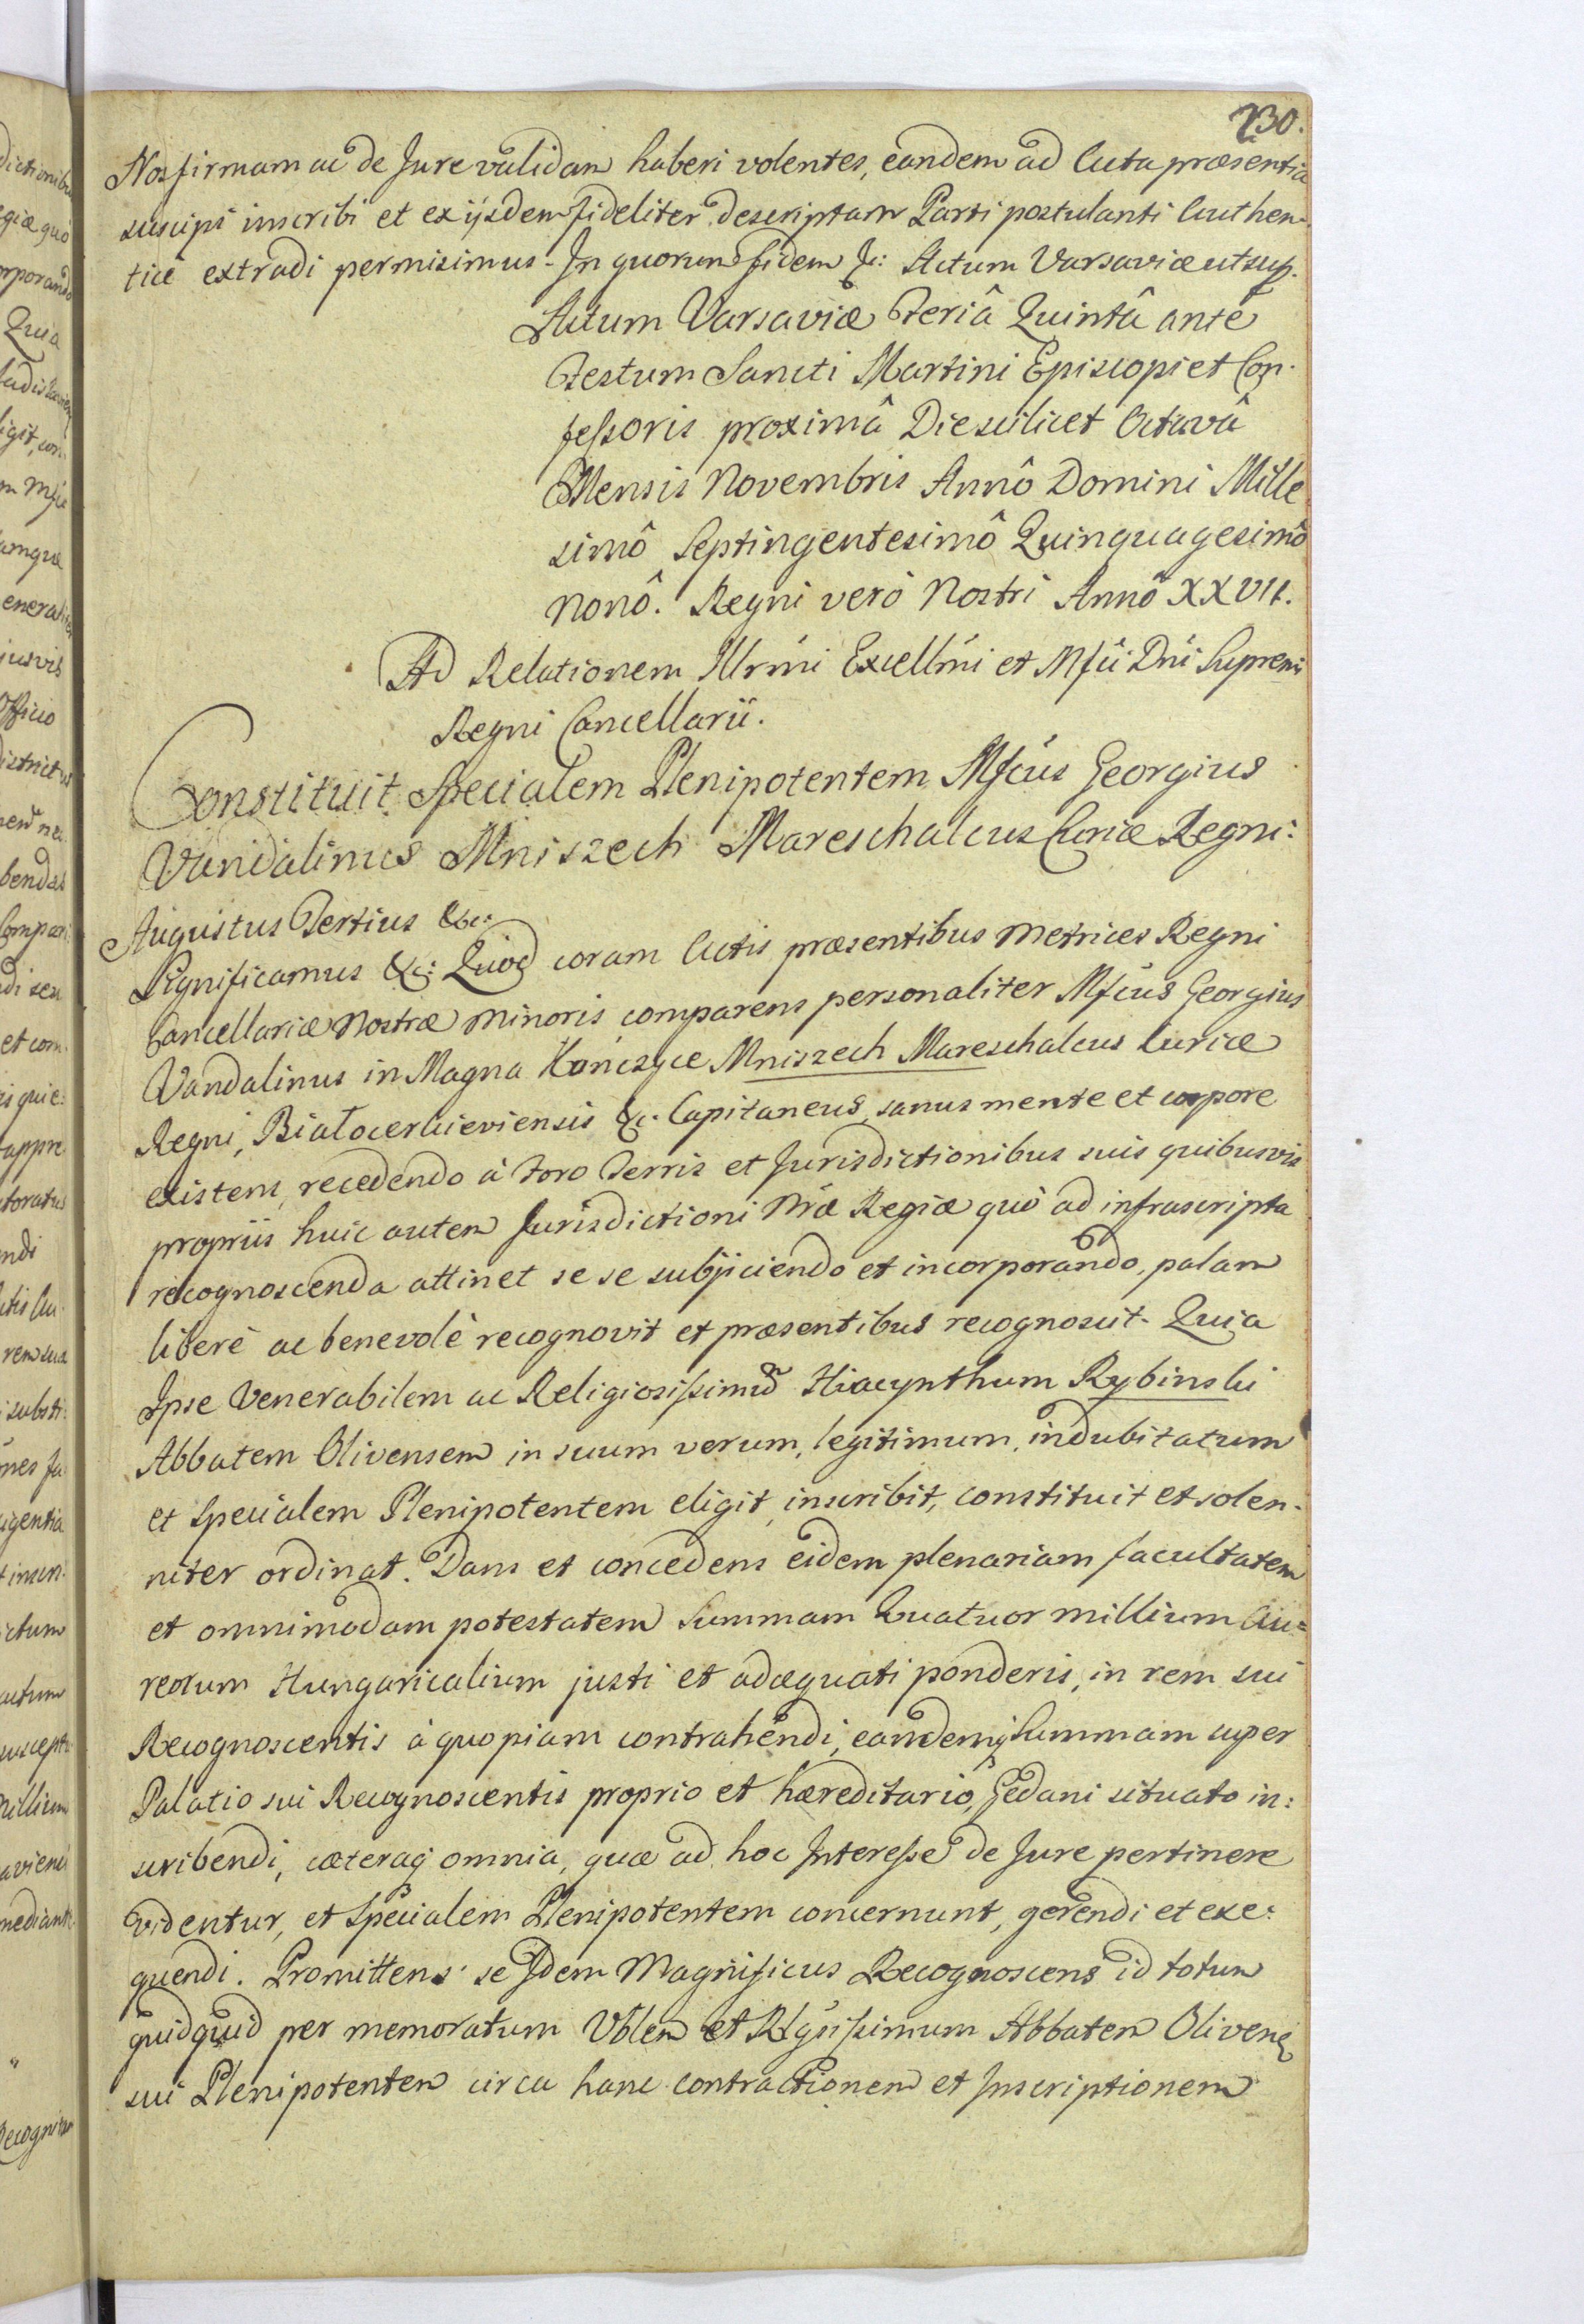 730.
Nos firmam ac de Jure validam haberi volentes, eandem ad Acta præsentia
suscipi inscribi et ex iisdem fideliter descriptam Parti postulanti Authen-
ticè extradi permisimus. In quorum fidem &c: Actum Varsaviæ ut sup.
Actum Varsaviæ Feriâ Quintâ ante
Festum Sancti Martini Episcopi et Con-
feſsoris proximâ Die scilicet Octavâ
Mensis Novembris Annô Domini Mille
simô Septingentesimô Quinquagesimô
Nonô. Regni verò Nostri Annô XXVII.
Ad Relationem Illrmi Excellmi et Mfci Dni Supremi
Regni Cancellarii.
Constituit Specialem Plenipotentem Mfcus Georgius
Vandalinus Mniszech Mareschalcus Curiæ Regni:
Augustus Tertius &c:
Significamus &c: Quod coram Actis præsentibus Metrices Regni
Cancellariæ Nostræ Minoris comparens personaliter Mfcus Georgius
Vandalinus in Magna Kończyce Mniszech Mareschalcus Curiæ
Regni, Białocerkieviensis &c. Capitaneus, sanus mente et corpore
existens, recedendo à Foro Terris et Jurisdictionibus suis quibusvis
propriis huic autem Jurisdictioni Nræ Regiæ quò ad infrascripta
recognoscenda attinet se se subjiciendo et incorporando, palam
liberè ac benevolè recognovit et præsentibus recognoscit. Quia
Ipse Venerabilem ac Religiosiſsimum Hiacynthum Rybinski
Abbatem Olivensem in suum verum, legitimum, indubitatum
et Specialem Plenipotentem eligit, inscribit, constituit et solen-
niter ordinat. Dans et concedens eidem plenariam facultatem
et omnimodam potestatem Summam Quatuor millium Au=
reorum Hungaricalium justi et adæquati ponderis, in rem sui
Recognoscentis à quopiam contrahendi, eandemq Summam super
Palatio sui Recognoscentis proprio et hæreditario, Gedani situato in:
scribendi, cæteraq omnia, quæ ad hoc Intereſse de Jure pertinere
videntur, et Specialem Plenipotentem concernunt, gerendi et exe:
quendi. Promittens se Idem Magnificus Recognoscens id totum
quidquid per memoratum Vblem et Rlgsiſsimum Abbatem Olivens
sui Plenipotentem circa hanc contractionem et Inscriptionem